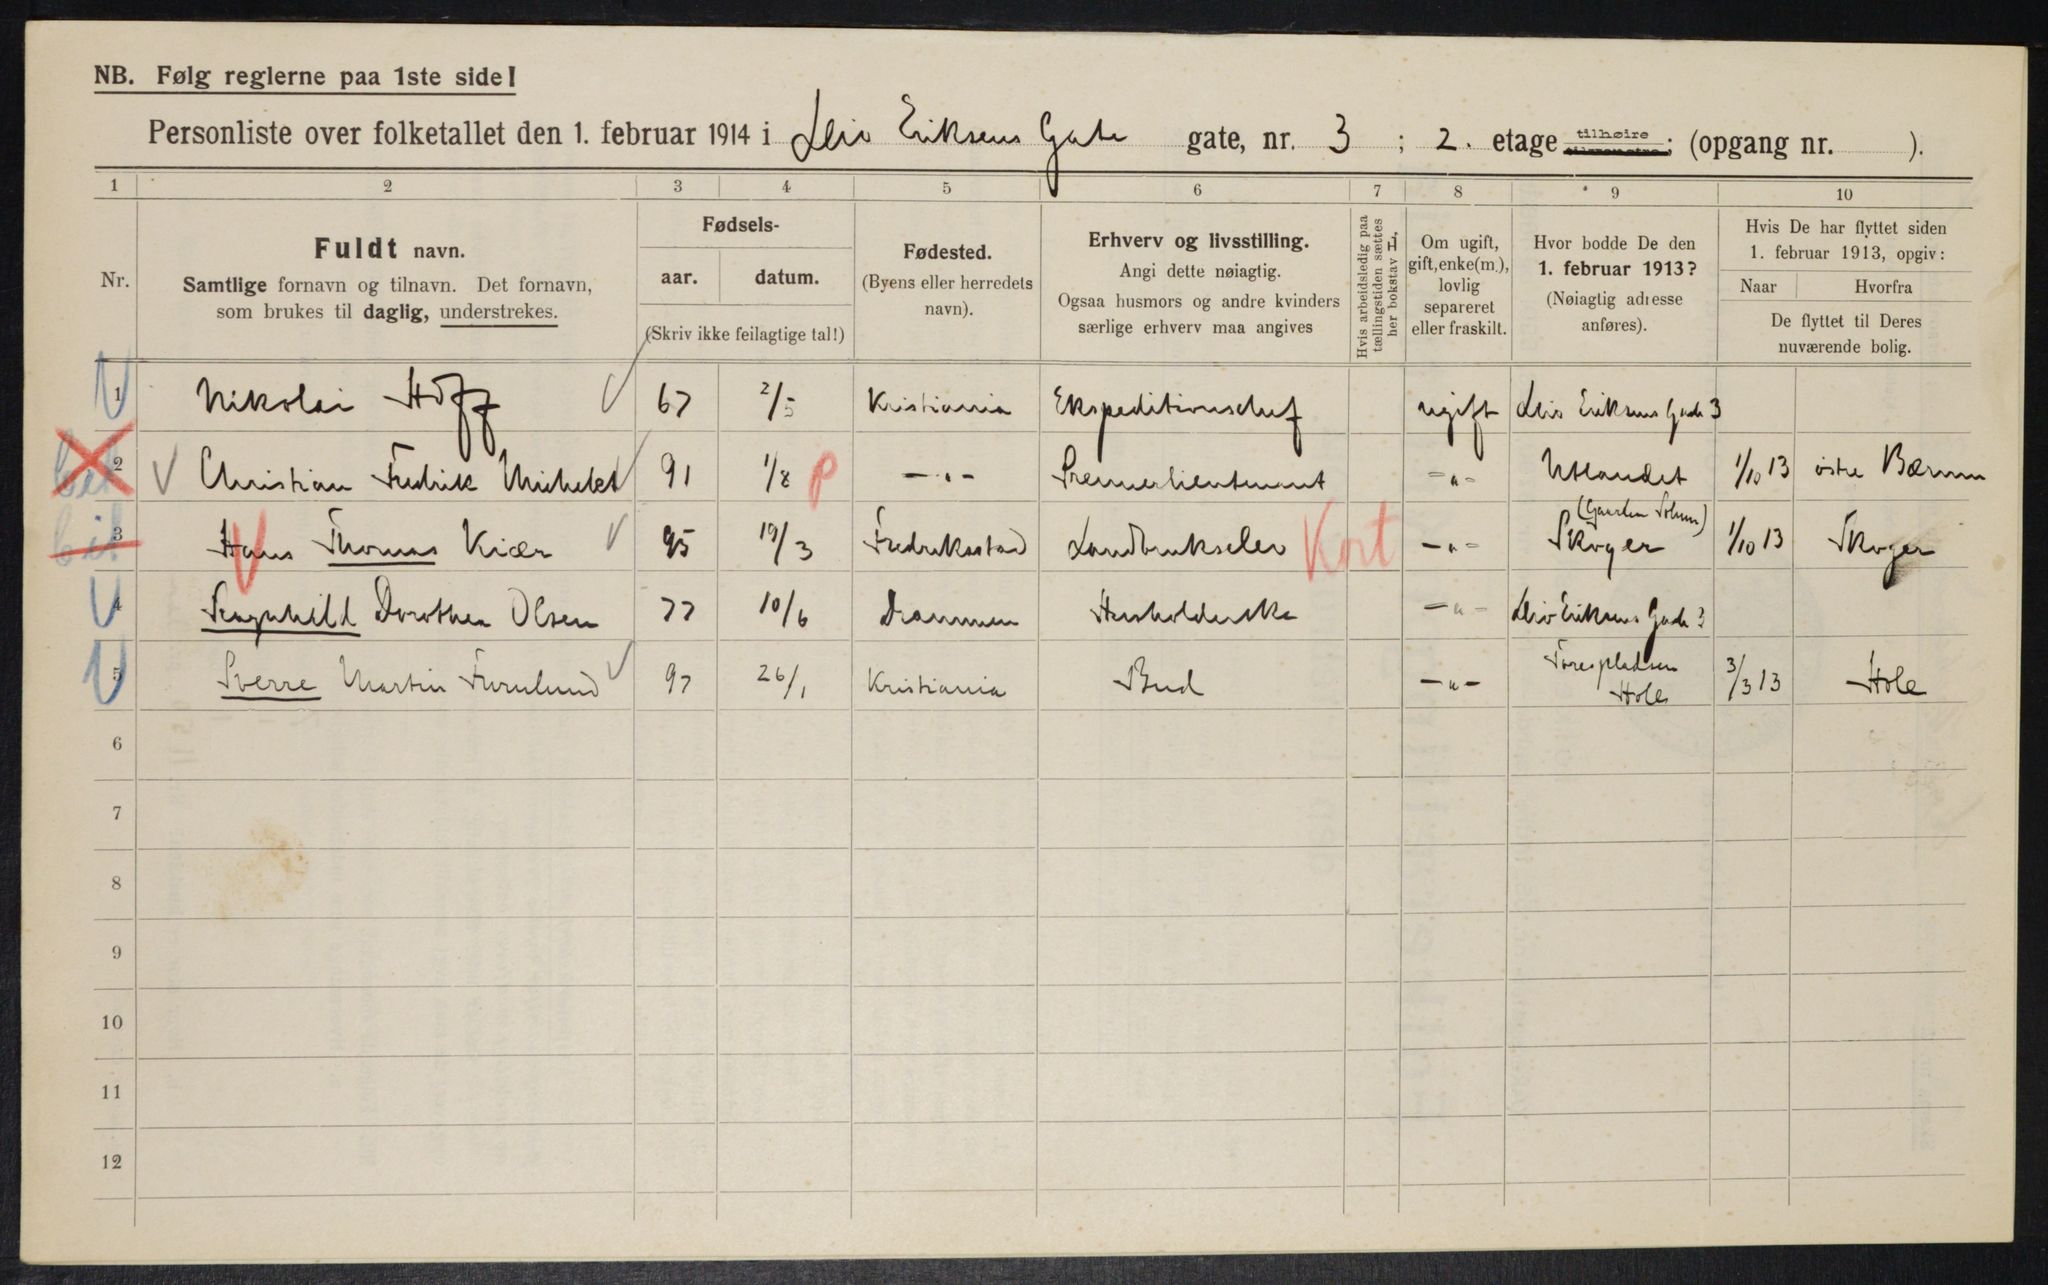 NB. Følg reglerne paa 1ste side!
Personliste over folketallet den 1. februar 1914 i Leiv Eriksens Gate gate, nr. 3 ; 2. etage tilhøire tilvenstre; (opgang nr. ).
1 2 3 4 5 6 7 8 9 10
Nr.
Fuldt navn.
Samtlige fornavn og tilnavn. Det fornavn,
som brukes til daglig, understrekes.
Fødsels-
aar. datum.
(Skriv ikke feilagtige tal!)
Fødested.
(Byens eller herredets
navn).
Erhverv og livsstilling.
Angi dette nøiagtig.
Ogsaa husmors og andre kvinders
særlige erhverv maa angives
Hvis arbeidsledig paa
tællingstiden sættes
her bokstav L.
Om ugift,
gift, enke(m.),
lovlig
separeret
eller fraskilt.
Hvor bodde De den
1. februar 1913?
(Nøiagtig adresse
anføres).
Hvis De har flyttet siden
1. februar 1913, opgiv:
Naar Hvorfra
De flyttet til Deres
nuværende bolig.
1 Nikolai Hoff 67 2/5 Kristiania Ekspeditionschef ugift Leiv Eriksens Gade 3
bet 2 Christian Fredrik Michelet 91 1/8 p —„— Premierlieutenant —„— Utlandet 1/10 13 østre Bærum
bet 3 Hans Thomas Kiær 95 19/3 Fredriksstad Landbrukselev Kort —„— (Gaarden Solum) Skoger 1/10 13 Skoger
4 Ragnhild Dorothea Olsen 77 10/6 Drammen Husholderske —„— Leiv Eriksens Gade 3
5 Sverre Martin Furulund 97 26/1 Kristiania Bud —„— Hole 3/3 13 Hole
6
7
8
9
10
11
12